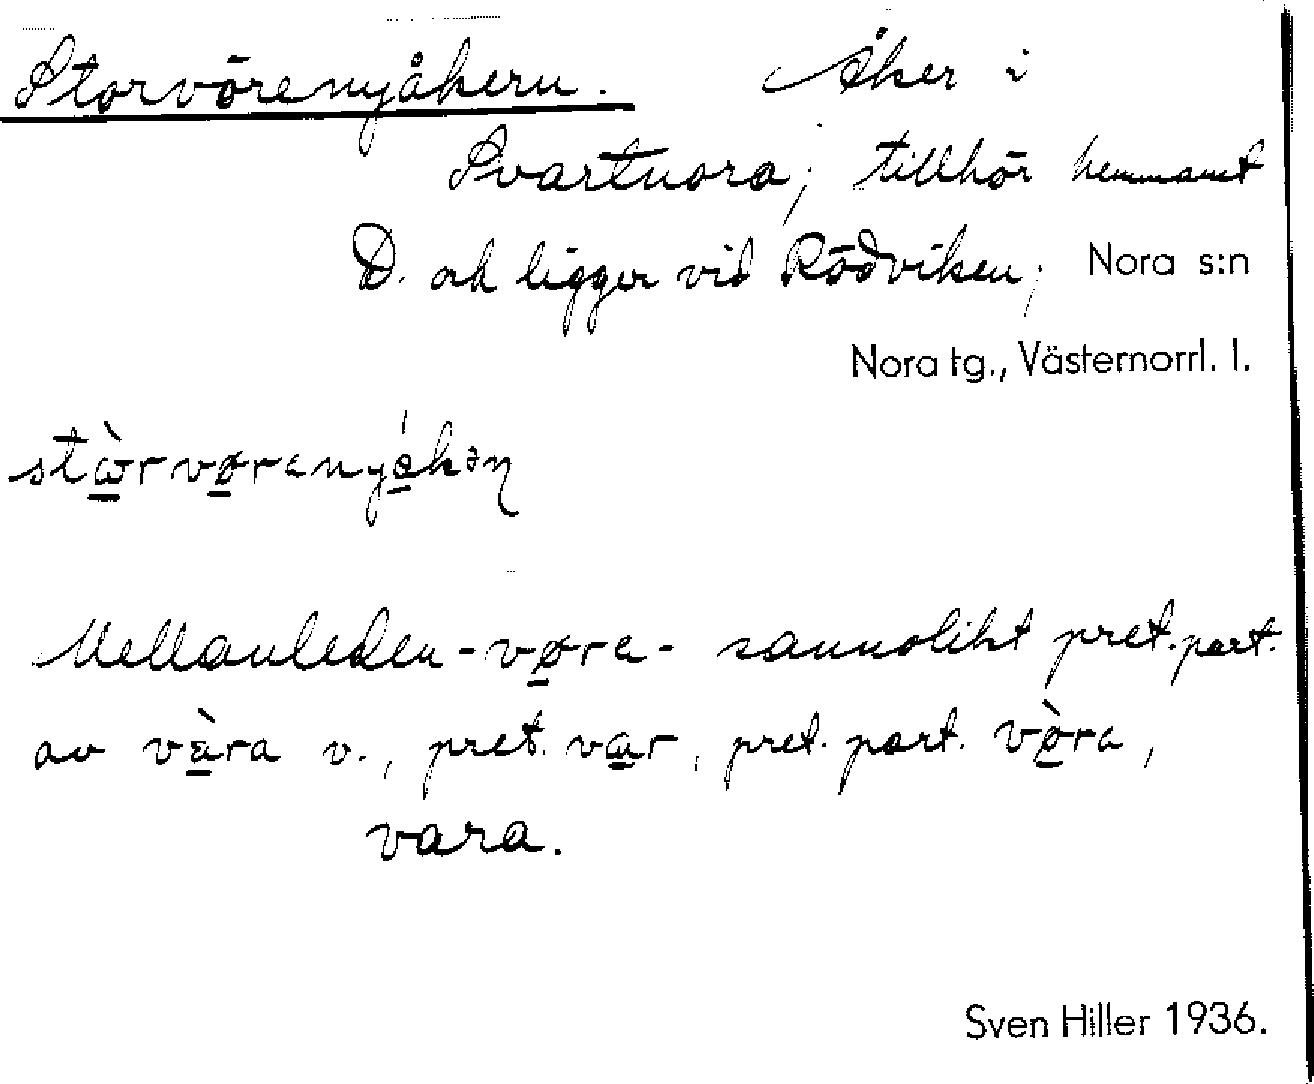 Storvörenyåkern. Åker i
Svartnora; tillhör hemmanet
D. och ligger vid Rödviken; Nora s:n
Nora tg., Västernorrl. l.
stὼrvørenyǻkəɳ
Mellanleden -vøre- sannolikt pret. part.
av vàra v., pret. vɷr, pret. part. vø̀ra,
vara.
Sven Hiller 1936.